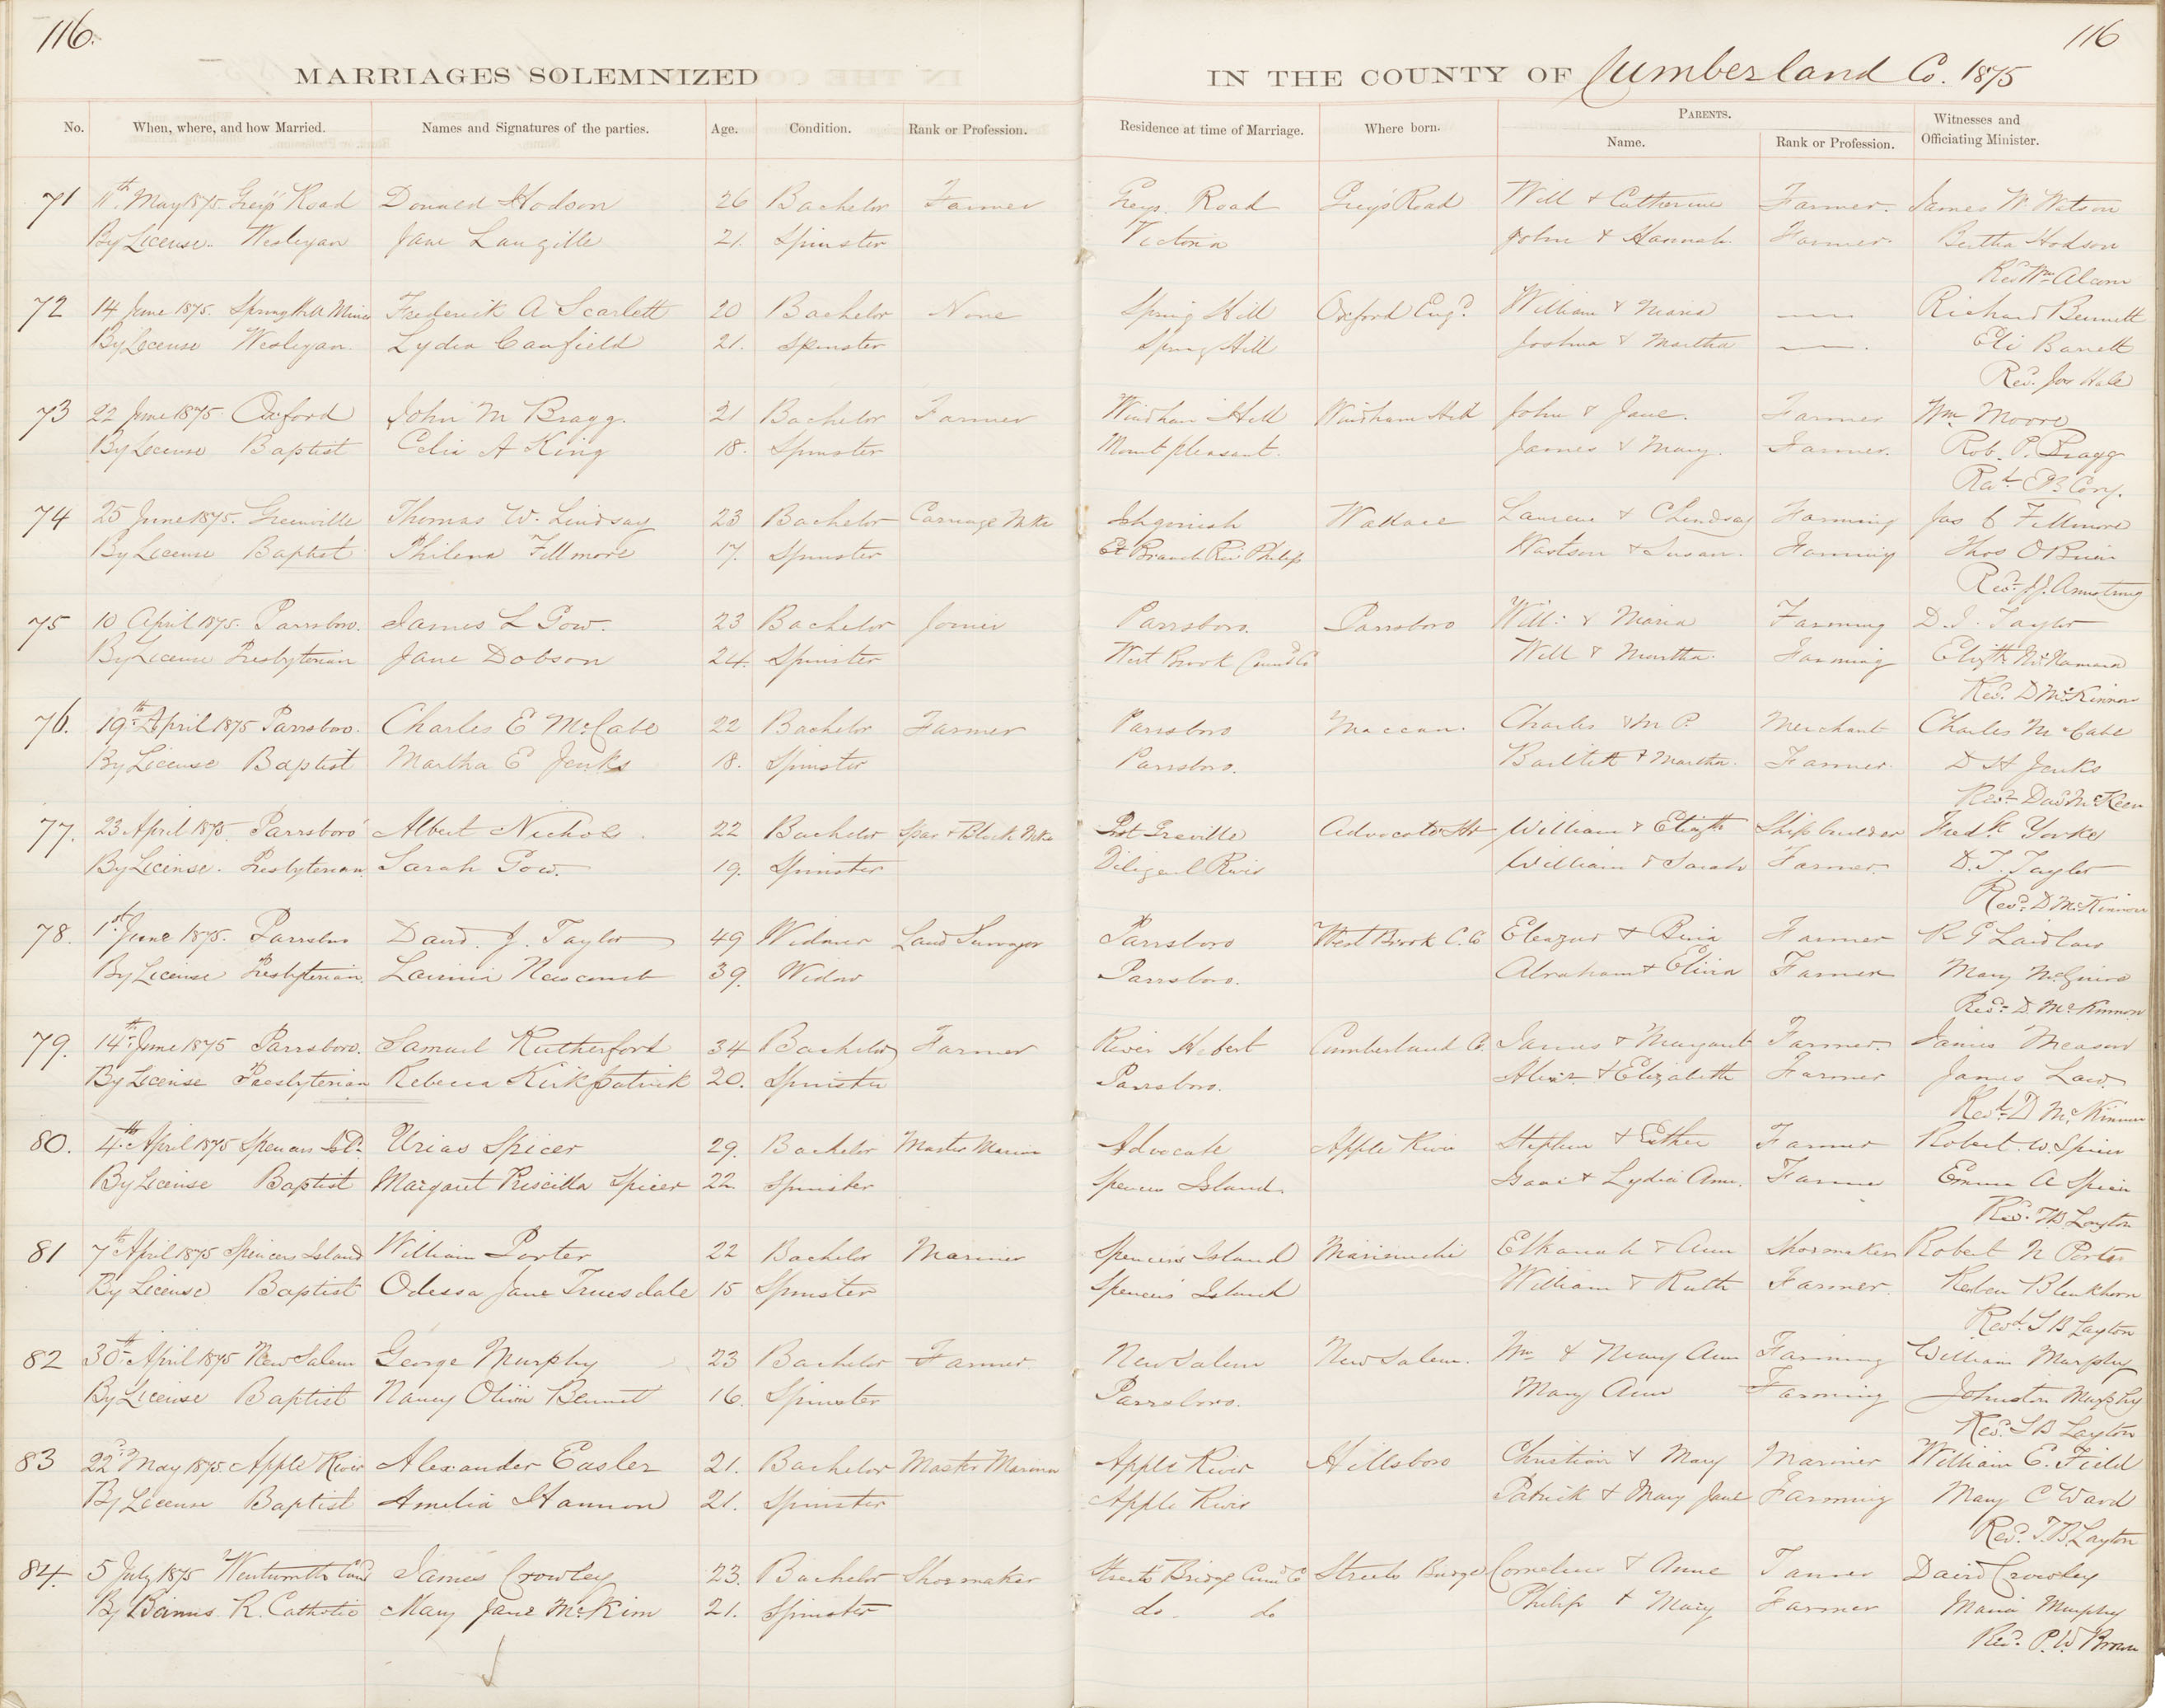 116. 116
MARRIAGES SOLEMNIZED IN THE COUNTY OF Cumberland Co. 1875
No. When, where, and how Married. Names and Signatures of the parties. Age. Condition. Rank or Profession. Residence at time of Marriage. Where born. PARENTS. Name. Rank or Profession. Witnesses and Officiating Minister.
71 11th May 1875. Greys Road Donald Hodson 26 Bachelor Farmer Greys. Road Grey's Road Will & Catherine Farmer. James W. Watson
By License. Wesleyan Jane Langille 21. Spinster Victoria John & Hannah. Farmer. Bertha Hodson
Revd Wm Alcorn
72 14 June 1875. Spring Hill Mines Frederick A Scarlett 20 Bachelor None Spring Hill Oxford Engd William & Maria — Richard Bennett
By License Wesleyan. Lydia Canfield 21. Spinster Spring Hill Joshua & Martha —. Eli Barrett
Revd. Jos Hale
73 22 June 1875 Oxford John M Bragg. 21 Bachelor Farmer Windham Hill Windham Hill John & Jane. Farmer Wm. Moore
By License Baptist Celia A King 18. Spinster Mount pleasant. James & Mary. Farmer. Rob. P. Bragg
Cory.
74 25 June 1875. Greenville Thomas W. Lindsay 23 Bachelor Carriage Mkr Wallace & Lindsay Farming Jas Fillmore
By License Baptist Philena Fillmore 17. Spinster Branch Riv. Philip & Susan. Farming Thos OBrien
Revd. J.J. Armstrong
75 10 April 1875. Parrsboro. James L Gow. 23 Bachelor Joiner Parrsboro. Parrsboro Will: & Maria Farming D. J. Taylor
By License Presbyterian Jane Dobson 24. Spinster West Brook Cumd Co Will & Martha. Farming Elizth McNamara
Revd. D McKinnon
76. 19th April 1875 Parrsboro. Charles E McCabe 22 Bachelor Farmer Parrsboro Maccan. Charles & M P. Merchant Charles McCabe
By License Baptist Martha E Jenks 18. Spinster Parrsboro. Bartlett & Martha. Farmer. D H Jenks
Revd Davd McKeen
77. 23 April 1875. Parrsboro Albert Nichols. 22 Bachelor Spar & Block Mkr Port Greville Advocate Hr William & Elizth Ship builder Fredk Yorke
By License. Presbyterian. Sarah Gow. 19. Spinster Diligent River William & Sarah Farmer. D. J. Taylor
Revd. D McKinnon
78. 1st June 1875. Parrsboro David. J. Taylor 49 Widower Land Surveyor Parrsboro West Brook C. Co Eleazur & Farmer R G Laidlaw
By License Presbyterian. Lavinia Newcomb 39. Widow Parrsboro. Abraham & Farmer Mary McGuire
Revd. D. McKinnon
79. 14th June 1875 Parrsboro. Samuel Rutherford 34 Bachelor Farmer River Hebert Cumberland Co. James & Margaret Farmer. James
By License Presbyterian Rebecca Kirkpatrick 20. Spinster Parrsboro. Alexr. & Elizabeth Farmer James Law.
Revd. D McKinnon
80. 4th April 1875 Spencers Isld. Urias Spicer 29. Bachelor Master Mariner Advocate Apple River Stephen & Esther Farmer Robert. W. Spicer
By License Baptist Margaret Priscilla Spicer 22 Spinster Spencers Island. Isaac & Lydia Ann. Farmer Emma A Spicer
Revd. T.B. Layton
81 7th April 1875 Spencers Island William Porter 22 Bachelor Mariner Spencers Island Mirimichi Elkanah & Ann Shoemaker Robert N Porter
By License Baptist Odessa Jane Truesdale 15 Spinster Spencers Island William & Ruth Farmer. Reuben Blenkhorn
Revd. T B Layton
82 30th April 1875 New Salem George Murphy 23 Bachelor Farmer New Salem New Salem. Wm & Mary Ann Farming William Murphy
By License Baptist Nancy Olivia Bennet 16. Spinster Parrsboro. Mary Ann Farming Johnston Murphy
Revd. T B Layton
83 22d May 1875. Apple River Alexander Easler 21. Bachelor Master Mariner Apple River Hillsboro Christian & Mary Mariner William E. Field
By License Baptist Amelia Hannon 21. Spinster Apple River Patrick & Mary Jane Farming Mary C Ward
Revd. T.B. Layton
84. 5 July 1875 Wentworth Cumd James Crowley 23. Bachelor Shoemaker Streets Bridge Cumd Co Streets Bridge Cornelius & Anne Tanner David Crowley
By Banns R. Catholic Mary Jane McKim 21. Spinster do. do Philip & Mary Farmer Maria Murphy
Revd. P. W. Brown